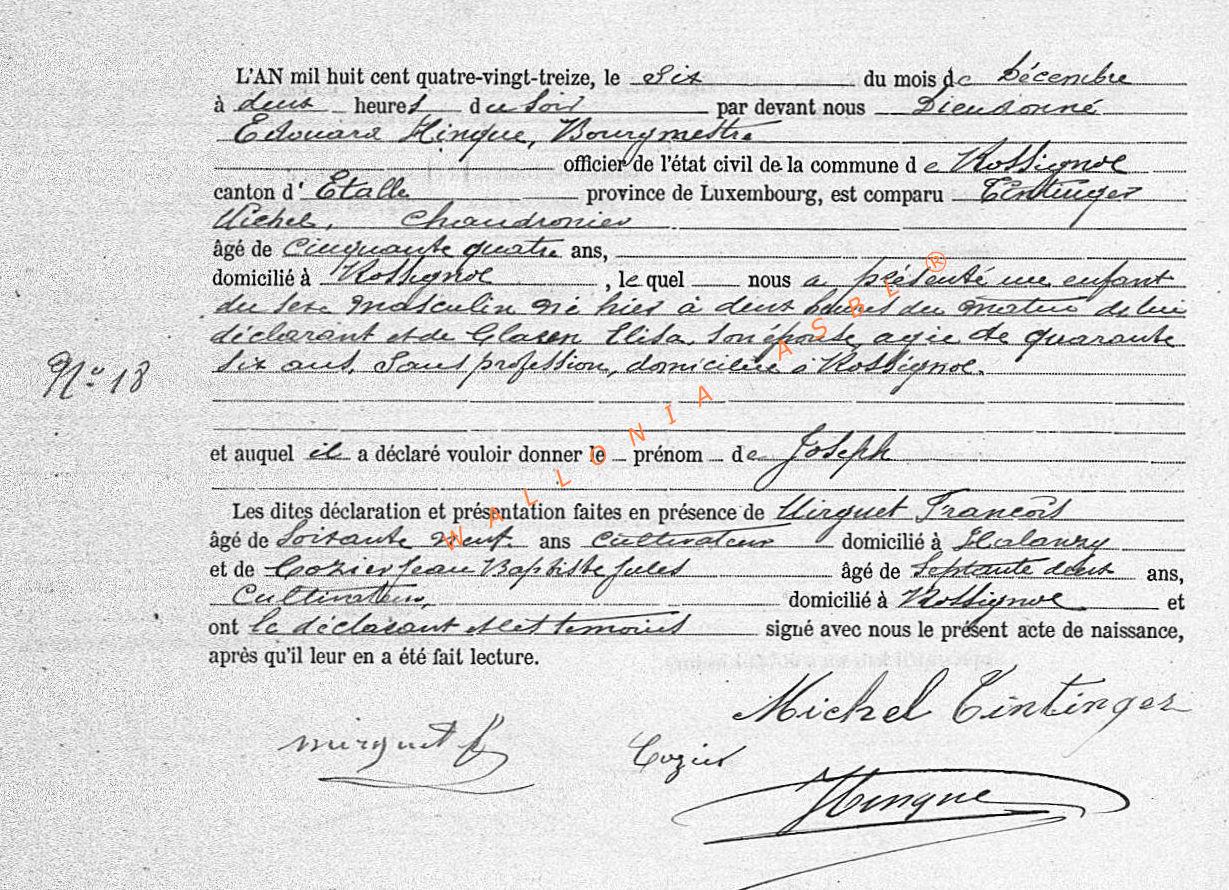 L'AN mil huit cent quatre-vingt-treize, le Six du mois de Décembre
à deux heures du Soir par devant nous Dieudonné
Edouard Hinque, Bourgmestre
officier de l'état civil de la commune de Rossignol
canton d' Etalle province de Luxembourg, est comparu Tintinger
Michel, Chaudronier
âgé de Cinquante quatre ans,
domicilié à Rossignol, le quel nous a présenté un enfant
du sexe masculin né hier à deux heures du matin de lui
déclarant et de Glasen Elisa, son épouse, agée de quarante
six ans, Sans profession, domiciliée à Rossignol.
N° 18
et auquel il a déclaré vouloir donner le prénom de Joseph
Les dites déclaration et présentation faites en présence de Mirguet François
âgé de Soixante neuf ans Cultivateur domicilié à Halanzy
et de Cozier Jean Baptiste Jules âgé de Septante deux ans,
Cultivateur, domicilié à Rossignol et
ont le déclarant et les temoins signé avec nous le présent acte de naissance,
après qu'il leur en a été fait lecture.
Michel Tintinger
mirguet f
Cozier
Hinque
WALLONIA ASBL ®